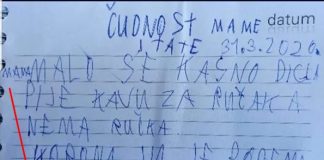 ČUDNOST MAME
I TATE 31.3.2020.
datum
MAMA MALO SE KASNO DIGLA
PIJE KAVU ZA RUČAK A
NEMA RUČKA.
KORONA IM JE